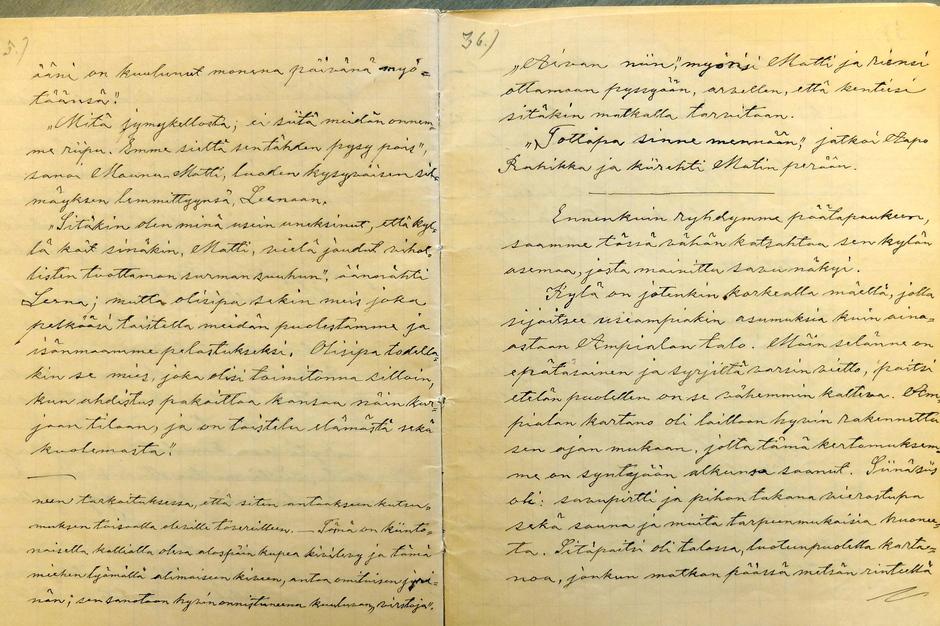 5.)
ääni on kuulunut monena päivänä myö-
täänsä".
"Mitä jymykellosta; ei siitä meidän onnem-
me riipu. Emme sieltä sentähden pysy pois",
sanoi Maunu-Matti, luoden kysyväisen sil-
mäyksen lemmittyynsä, Leenaan.
"Sitäkin olen minä usein uneksinut, että kyl-
lä kait sinäkin, Matti, vielä joudut vihol-
listen tuottaman surman suuhun", äännähti
Leena; mutta olisipa sekin mies joka
pelkääsi taistella meidän puolestamme ja
isänmaamme pelastukseksi. Olisipa todella-
kin se mies, joka olisi toimitonna silloin,
kun ahdistus pakoittaa kansaa näin kur-
jaan tilaan, ja on taistelu elämästä sekä
kuolemasta".
neen tarkoituksessa, että siten antaakseen kutsu-
muksen toisaalla oleville tovereilleen. — Tämä on kiinto-
naisella kalliolla oleva alospäin kupea kivilevy ja tämä
miehen lyömällä alimaiseen kiveen, antaa omituisen jyri-
nän; sen sanotaan hyvin onnistuneena kuuluvan virstoja".
36.)
"Aivan niin", myönsi Matti ja riensi
ottamaan pyssyään, arvellen, että kenties
sitäkin matkalla tarvitaan.
"Tottapa sinne mennään", jatkoi Aapo
Rahikka ja kiirehti Matin perään.
Ennenkuin ryhdymme päätapaukseen,
saamme tässä vähän katsahtaa sen kylän
asemaa, josta mainittu savu näkyi.
Kylä on jotenkin korkealla mäellä, jolla
sijaitsee useampiakin asumuksia kuin aino-
astaan Ampialan talo. Mäin selänne on
epätasainen ja syrjiltä varsin vietto, paitsi
etelän puolelten on se vähemmin kalteva. Am-
pialan kartano oli laillaan hyvin rakennettu
sen ajan mukaan, jolta tämä kertomuksem-
me on syntyjään alkunsa saanut. Siinä siis
oli: savupirtti ja pihan takana vierastupa
sekä sauna ja muita tarpeenmukaisia huonei-
ta. Sitäpaitsi oli talossa, luoteenpuolella karta-
noa, jonkun matkan päässä metsän rinteellä